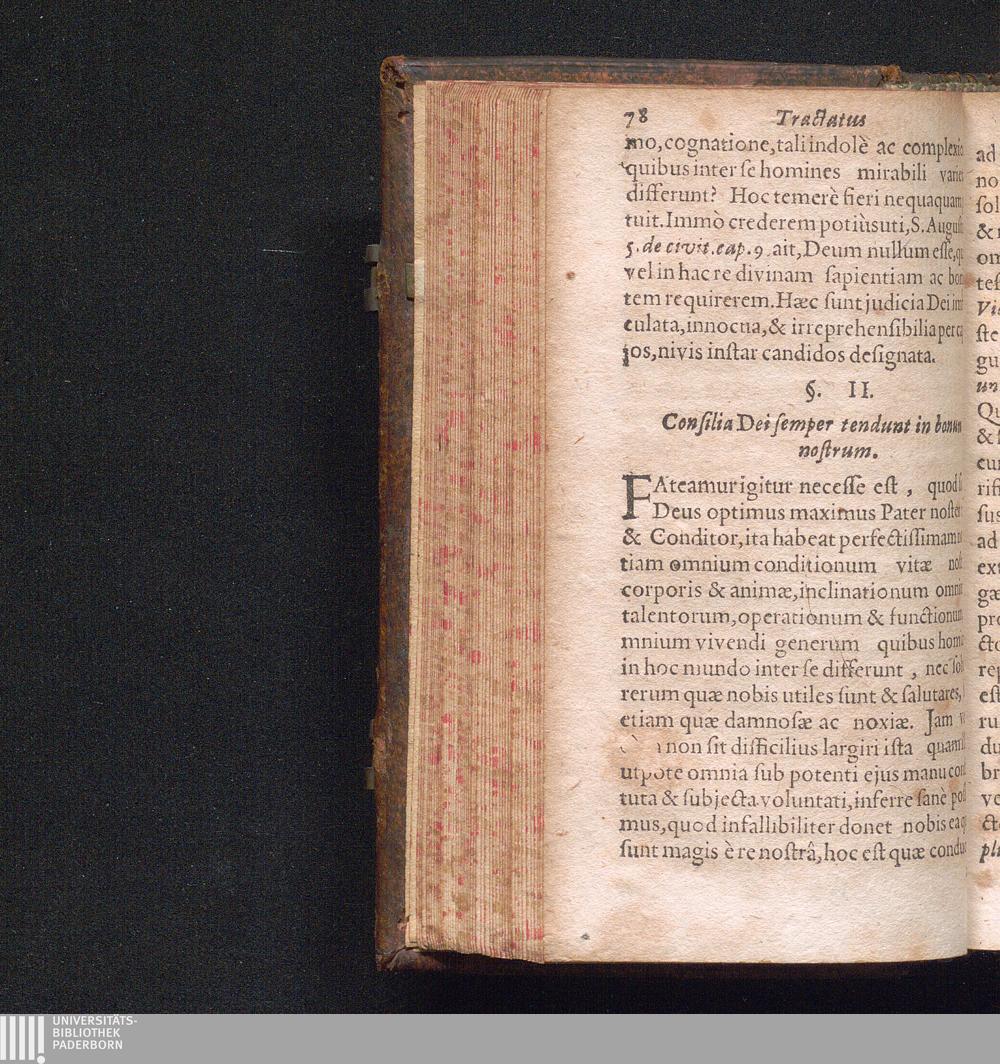 78 Tractatus
mo,cognatione,tali indolè ac complexio
quibus inter ſe homines mirabili
differunt? Hoc temerè fieri nequaquam
tuit. Immò crederem potiùsuti, S. Auguſt
5. de civit. cap. 9. ait, Deum nullum eſſe, q
vel in hac re divinam ſapientiam ac bon
tem requirerem. Hæc ſunt judicia Dei im
culata, innocua, & irreprehenſibilia per
jos, nivis inſtar candidos deſignata.
§. II.
Conſilia Dei ſemper tendunt in bonum
noſtrum.
FAteamur igitur neceſſe eſt , quod ſi
Deus optimus maximus Pater noſter
& Conditor, ita habeat perfectiſſimam n
tiam omnium conditionum vitæ noſt
corporis & animæ, inclinationum omni
talentorum, operationum & functionum
mnium vivendi generum quibus hom
in hoc mundo inter ſe differunt , nec ſol
rerum quæ nobis utiles ſunt & ſalutares,
etiam quæ damnoſæ ac noxiæ. Jam v
non ſit difficilius largiri iſta quam ill
utpote omnia ſub potenti ejus manu con
tuta & ſubjecta voluntati, inferre ſanè poſ
mus, quod infallibiliter donet nobis ea q
ſunt magis è re noſtrâ, hoc eſt quæ condu
ad
no
ſol
&
om
teſ
Vi
ſte
gu
un
Qu
& ſ
cui
rifi
ſus
ad
ext
gæ
pro
cto
rep
eſt
ru
du
br
ve
cto
pl
UNIVERSITÄTS-
BIBLIOTHEK
PADERBORN